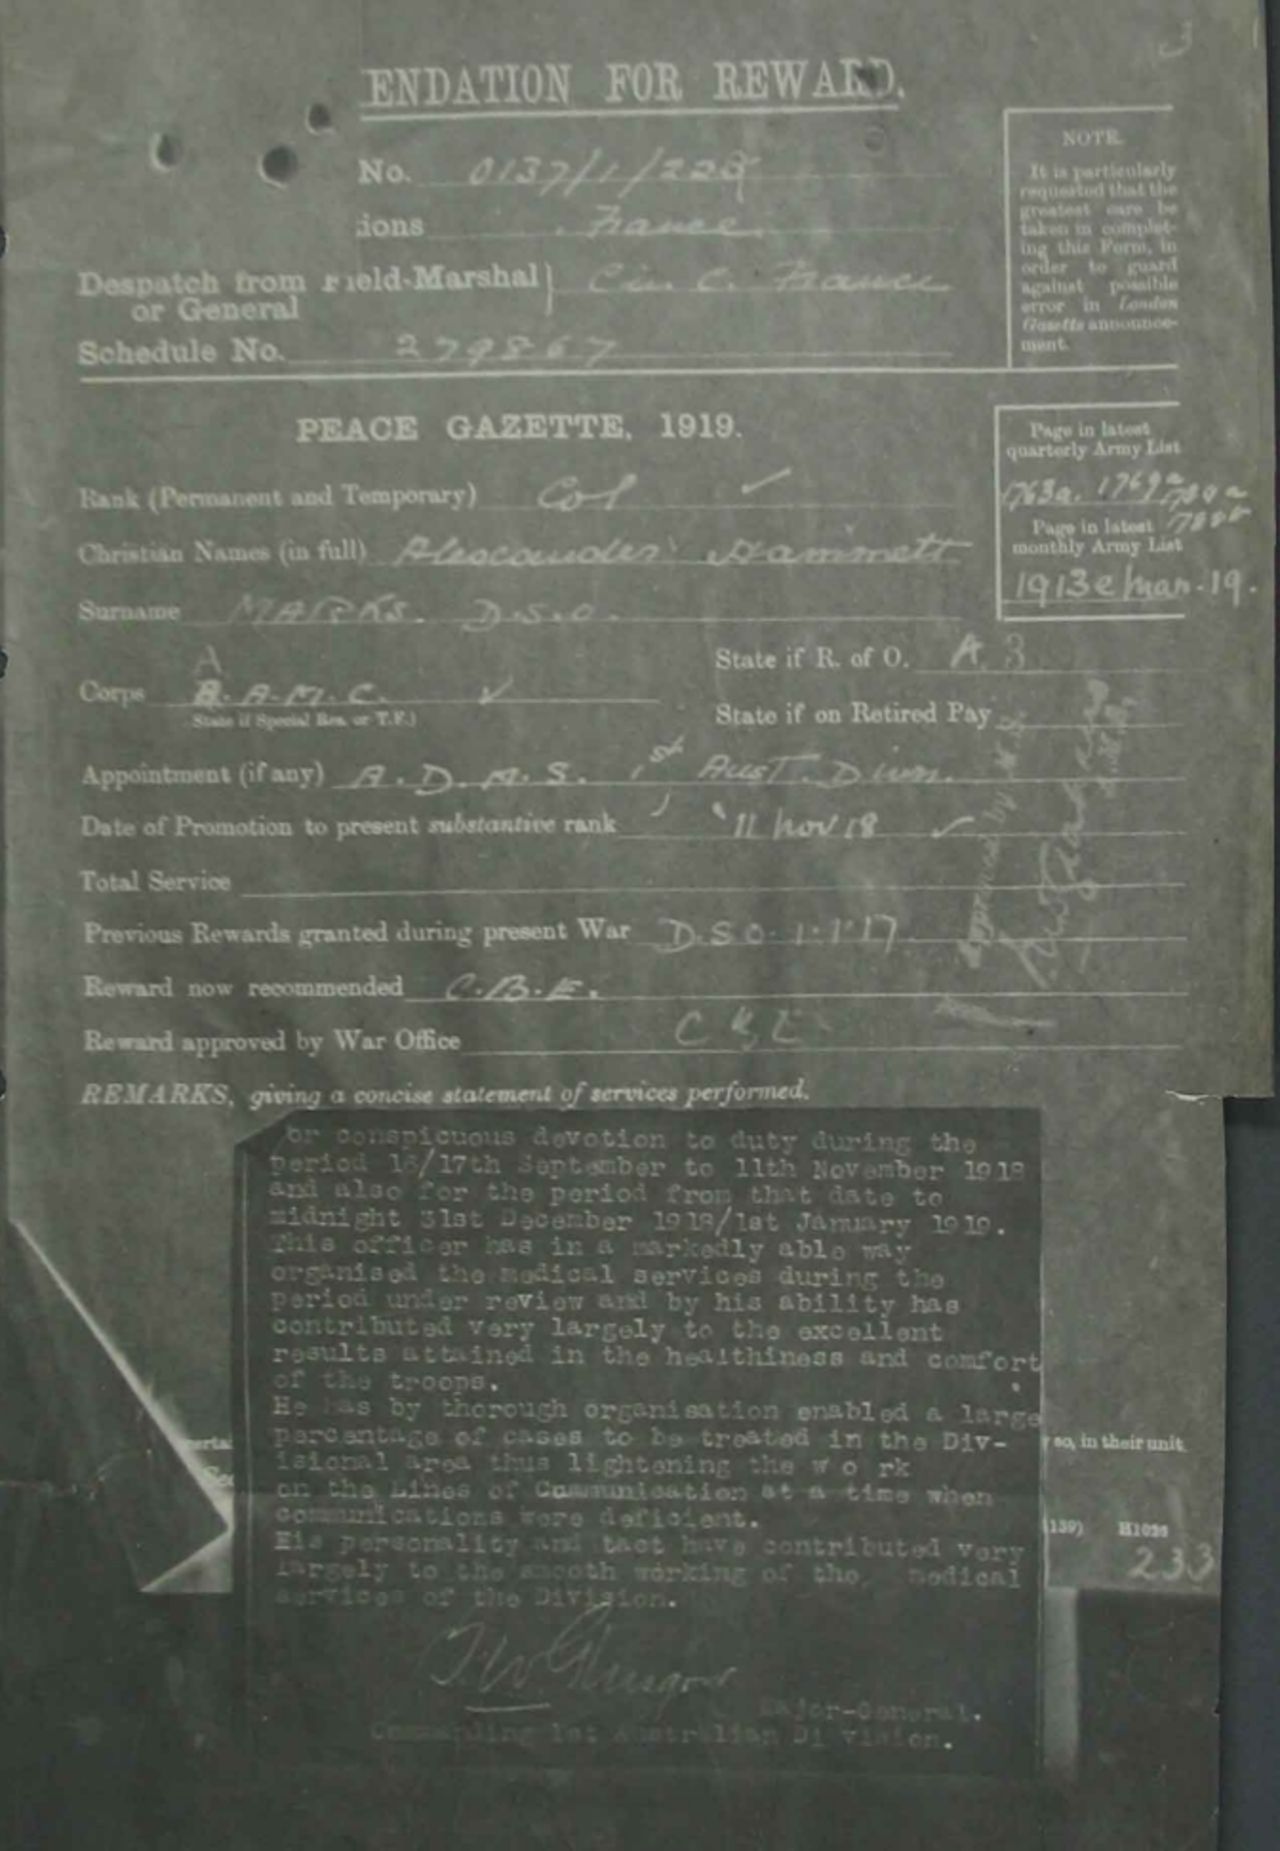 ENDATION FOR REWARD.
No. 0137/1/228
ions France
Despatch from Field-Marshal
or General } C in C. France
Schedule No. 279867
NOTE.
It is particularly
requested that the
greatest care be
taken in complet-
ing this Form, in
order to guard
against possible
error in London
Gazette announce-
ment.
PEACE GAZETTE, 1919.
Page in latest
quarterly Army List
1763a. 1769a
Page in latest
monthly Army List
1913e/mar.19.
Rank (Permanent and Temporary) Col ✓
Christian Names (in full) Alexander Hammett
Surname MARKS. D.S.O.
State if R. of O. A. 3
A
Corps R.A.M.C. ✓
State if Special Res. or T.F.)
State if on Retired Pay
Appointment (if any) A.D.M.S. 1st Aust. Divn.
Date of Promotion to present substantive rank 11 Nov 18 ✓
Total Service
Previous Rewards granted during present War D.S.O. 1.1.17.
Reward now recommended C.B.E.
Reward approved by War Office C B E
Approved by
REMARKS, giving a concise statement of services performed.
or conspicuous devotion to duty during the
period 16/17th September to 11th November 1918
and also for the period from that date to
midnight 31st December 1918/1st January 1919.
This officer has in a markedly able way
organised the medical services during the
period under review and by his ability has
contributed very largely to the excellent
results attained in the healthiness and comfort
of the troops.
He has by thorough organisation enabled a large
percentage of cases to be treated in the Div-
isional area thus lightening the w o rk
on the Lines of Communication at a time when
communications were deficient.
His personality and tact have contributed very
largely to the smooth working of the medical
services of the Division.
so, in their unit.
(139) H1026
233
Major-General.
Commanding 1st Australian Di vision.